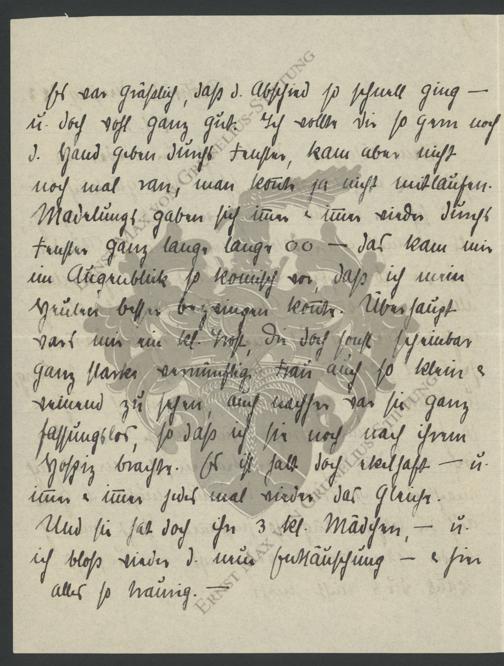 Es war gräßlich, daß d. Abschied so schnell ging —
u. doch wohl ganz gut. Ich wollte dir so gern noch
d. Hand geben durchs Fenster, kam aber nicht
noch mal ran, man konnte ja nicht mitlaufen.
Madelungs gaben sich immer & immer wieder durchs
Fenster ganz lange lange oo — das kam mir
im Augenblick so komisch vor, daß ich mein
Heulen besser bezwingen konnte. Überhaupt
wars mir ein kl. Trost, die doch sonst scheinbar
ganz starke vernünftige Frau auch so klein &
weinend zu sehen, auch nachher war sie ganz
fassungslos, so daß ich sie noch nach ihrem
Hospiz brachte. Es ist halt doch ekelhaft — u.
immer & immer jedes mal wieder das Gleiche.
Und sie hat doch ihre 3 kl. Mädchen, — u.
ich bloß wieder d. neue Enttäuschung — & hier
alles so traurig. —
ERNST MAX VON GRUNELIUS-STIFTUNG
ERNST MAX VON GRUNELIUS-STIFTUNG